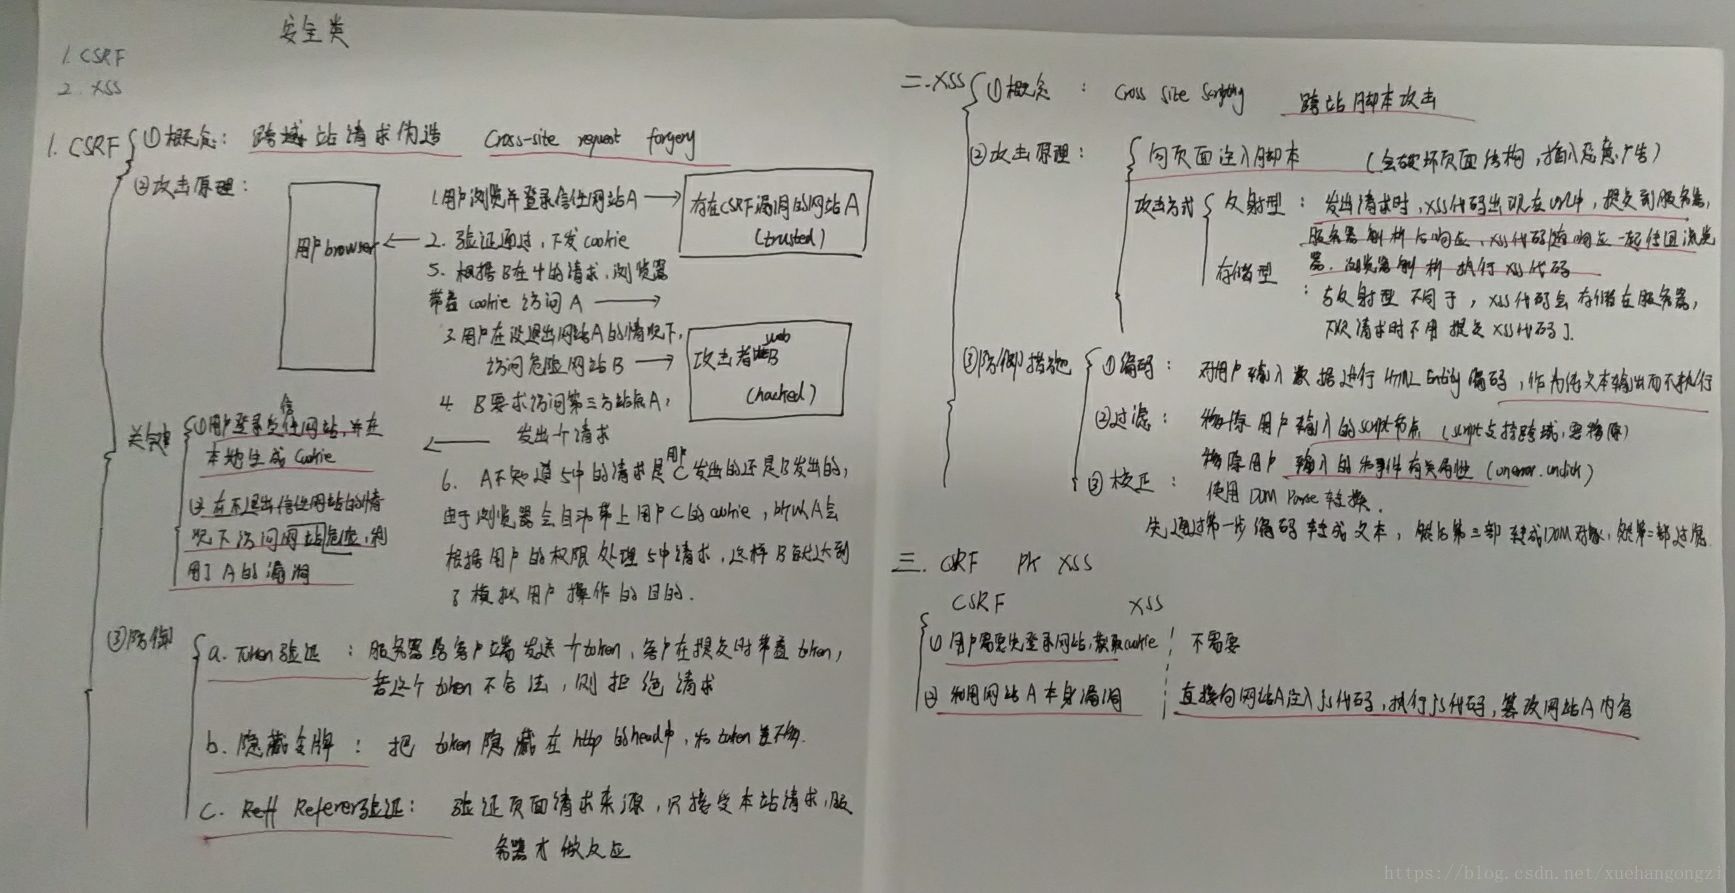 安全类
1. CSRF
2. XSS
1. CSRF
①概念: 跨域站请求伪造 Cross-site request forgery
②攻击原理:
用户browser
1.用户浏览并登录信任网站A
存在CSRF漏洞的网站A
(trusted)
2. 验证通过,下发cookie
5. 根据B在4的请求,浏览器
带着 cookie 访问 A
3.用户在没退出网站A的情况下,
访问危险网站B
攻击者 web B
(hacked)
4. B要求访问第三方站点A,
发出一个请求
6. A不知道5中的请求是用户C发出的还是B发出的,
由于浏览器会自动带上用户C的cookie,所以A会
根据用户的权限处理5中请求,这样B就达到
了模拟用户操作的目的.
关键
①用户登录受信任网站,并在
本地生成Cookie
②在不退出信任网站的情
况下访问网站危险,利
用了A的漏洞
③防御
a. Token验证 : 服务器给客户端发送一个token,客户在提交时带着token,
若这个token不合法,则拒绝请求
b. 隐藏令牌 : 把 token 隐藏在 http 的head中,和 token 差不多.
c. Reff Referer验证: 验证页面请求来源,只接受本站请求,服
务器才做反应
二.XSS
①概念 : Cross Site Scripting 跨站脚本攻击
②攻击原理:
向页面注入脚本 (会破坏页面结构,插入恶意广告)
攻击方式
反射型 : 发出请求时,XSS代码出现在url中,提交到服务器,
服务器解析后响应,XSS代码随响应一起传回浏览
器.浏览器解析执行XSS代码
存储型
: 与反射型不同于,XSS代码会存储在服务器,
下次请求时不用提交XSS代码].
③防御措施
①编码 : 对用户输入数据进行 HTML Entity 编码,作为传文本输出而不执行
②过滤 : 移除用户输入的script节点 (script支持跨域,要移除)
移除用户输入的和事件有关属性 (onerror.onclick)
③校正 : 使用 DOM Parse 转换.
先通过第一步编码转成文本,然后第三部转成DOM对象,然第二部过滤
三. CSRF PK XSS
CSRF XSS
① 用户需要先登录网站,获取cookie 不需要
② 利用网站A本身漏洞 直接向网站A注入js代码,执行js代码,篡改网站A内容
https://blog.csdn.net/xuehangongzi